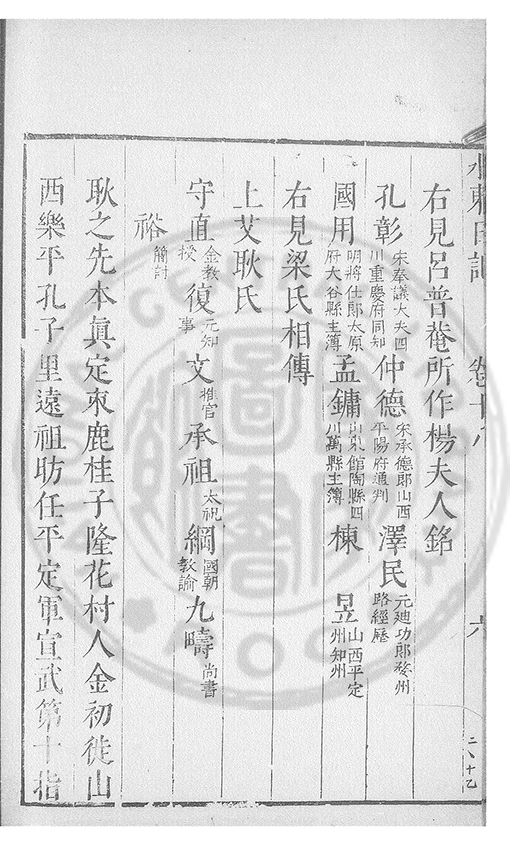 水東日記 卷十八 六
右見呂普菴所作楊夫人銘
孔彰宋奉議大夫四川重慶府同知仲德宋承德郎山西平陽府通判澤民元廸功郎婺州路經歷
國用明將仕郎太原府大谷縣主簿孟鏞山東館陶縣四川萬縣主簿棟 昱山西平定州知州
右見梁氏相傳
上艾耿氏
守直金教授復元知事文推官承祖太祝綱國朝教諭九疇尚書
裕簡討
耿之先本真定束鹿桂子隆花村人金初徙山
西樂平孔子里遠祖昉任平定軍宣武第十指